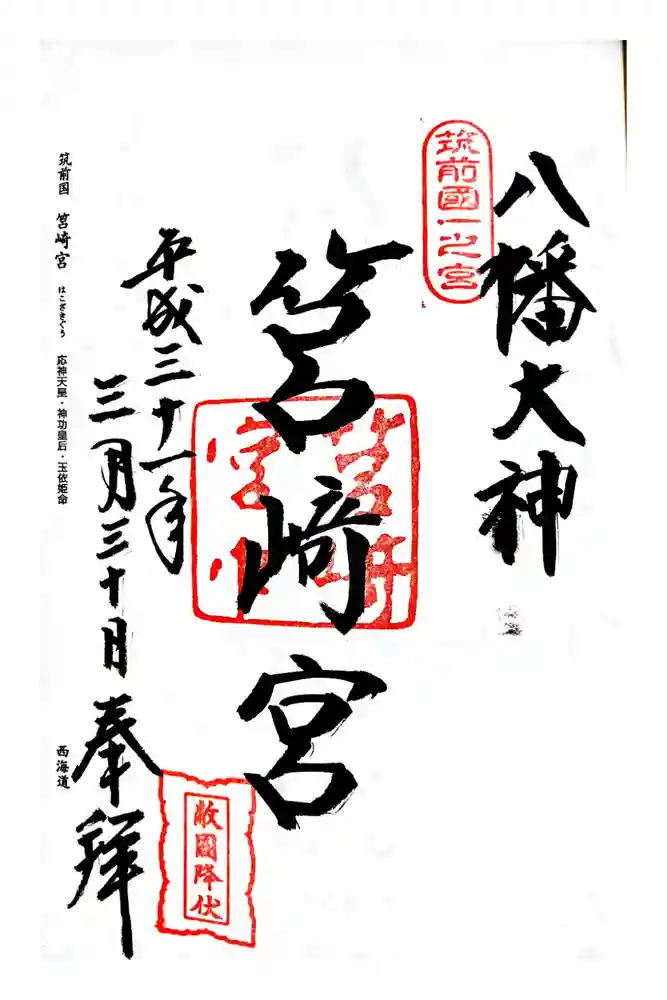 八幡大神
筑前國一之宮
筥崎宮
筥崎宮印
平成三十一年
三月三十日
奉拜
敵國降伏
筑前国 筥崎宮 はこざきぐう 応神天皇・神功皇后・玉依姫命 西海道